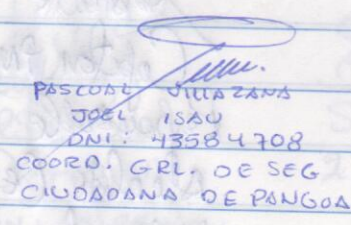 PASCUAL VILLAZANA
JOEL ISAU
DNI: 43584708
COORD. GRL. DE SEG
CIUDADANA DE PANGOA